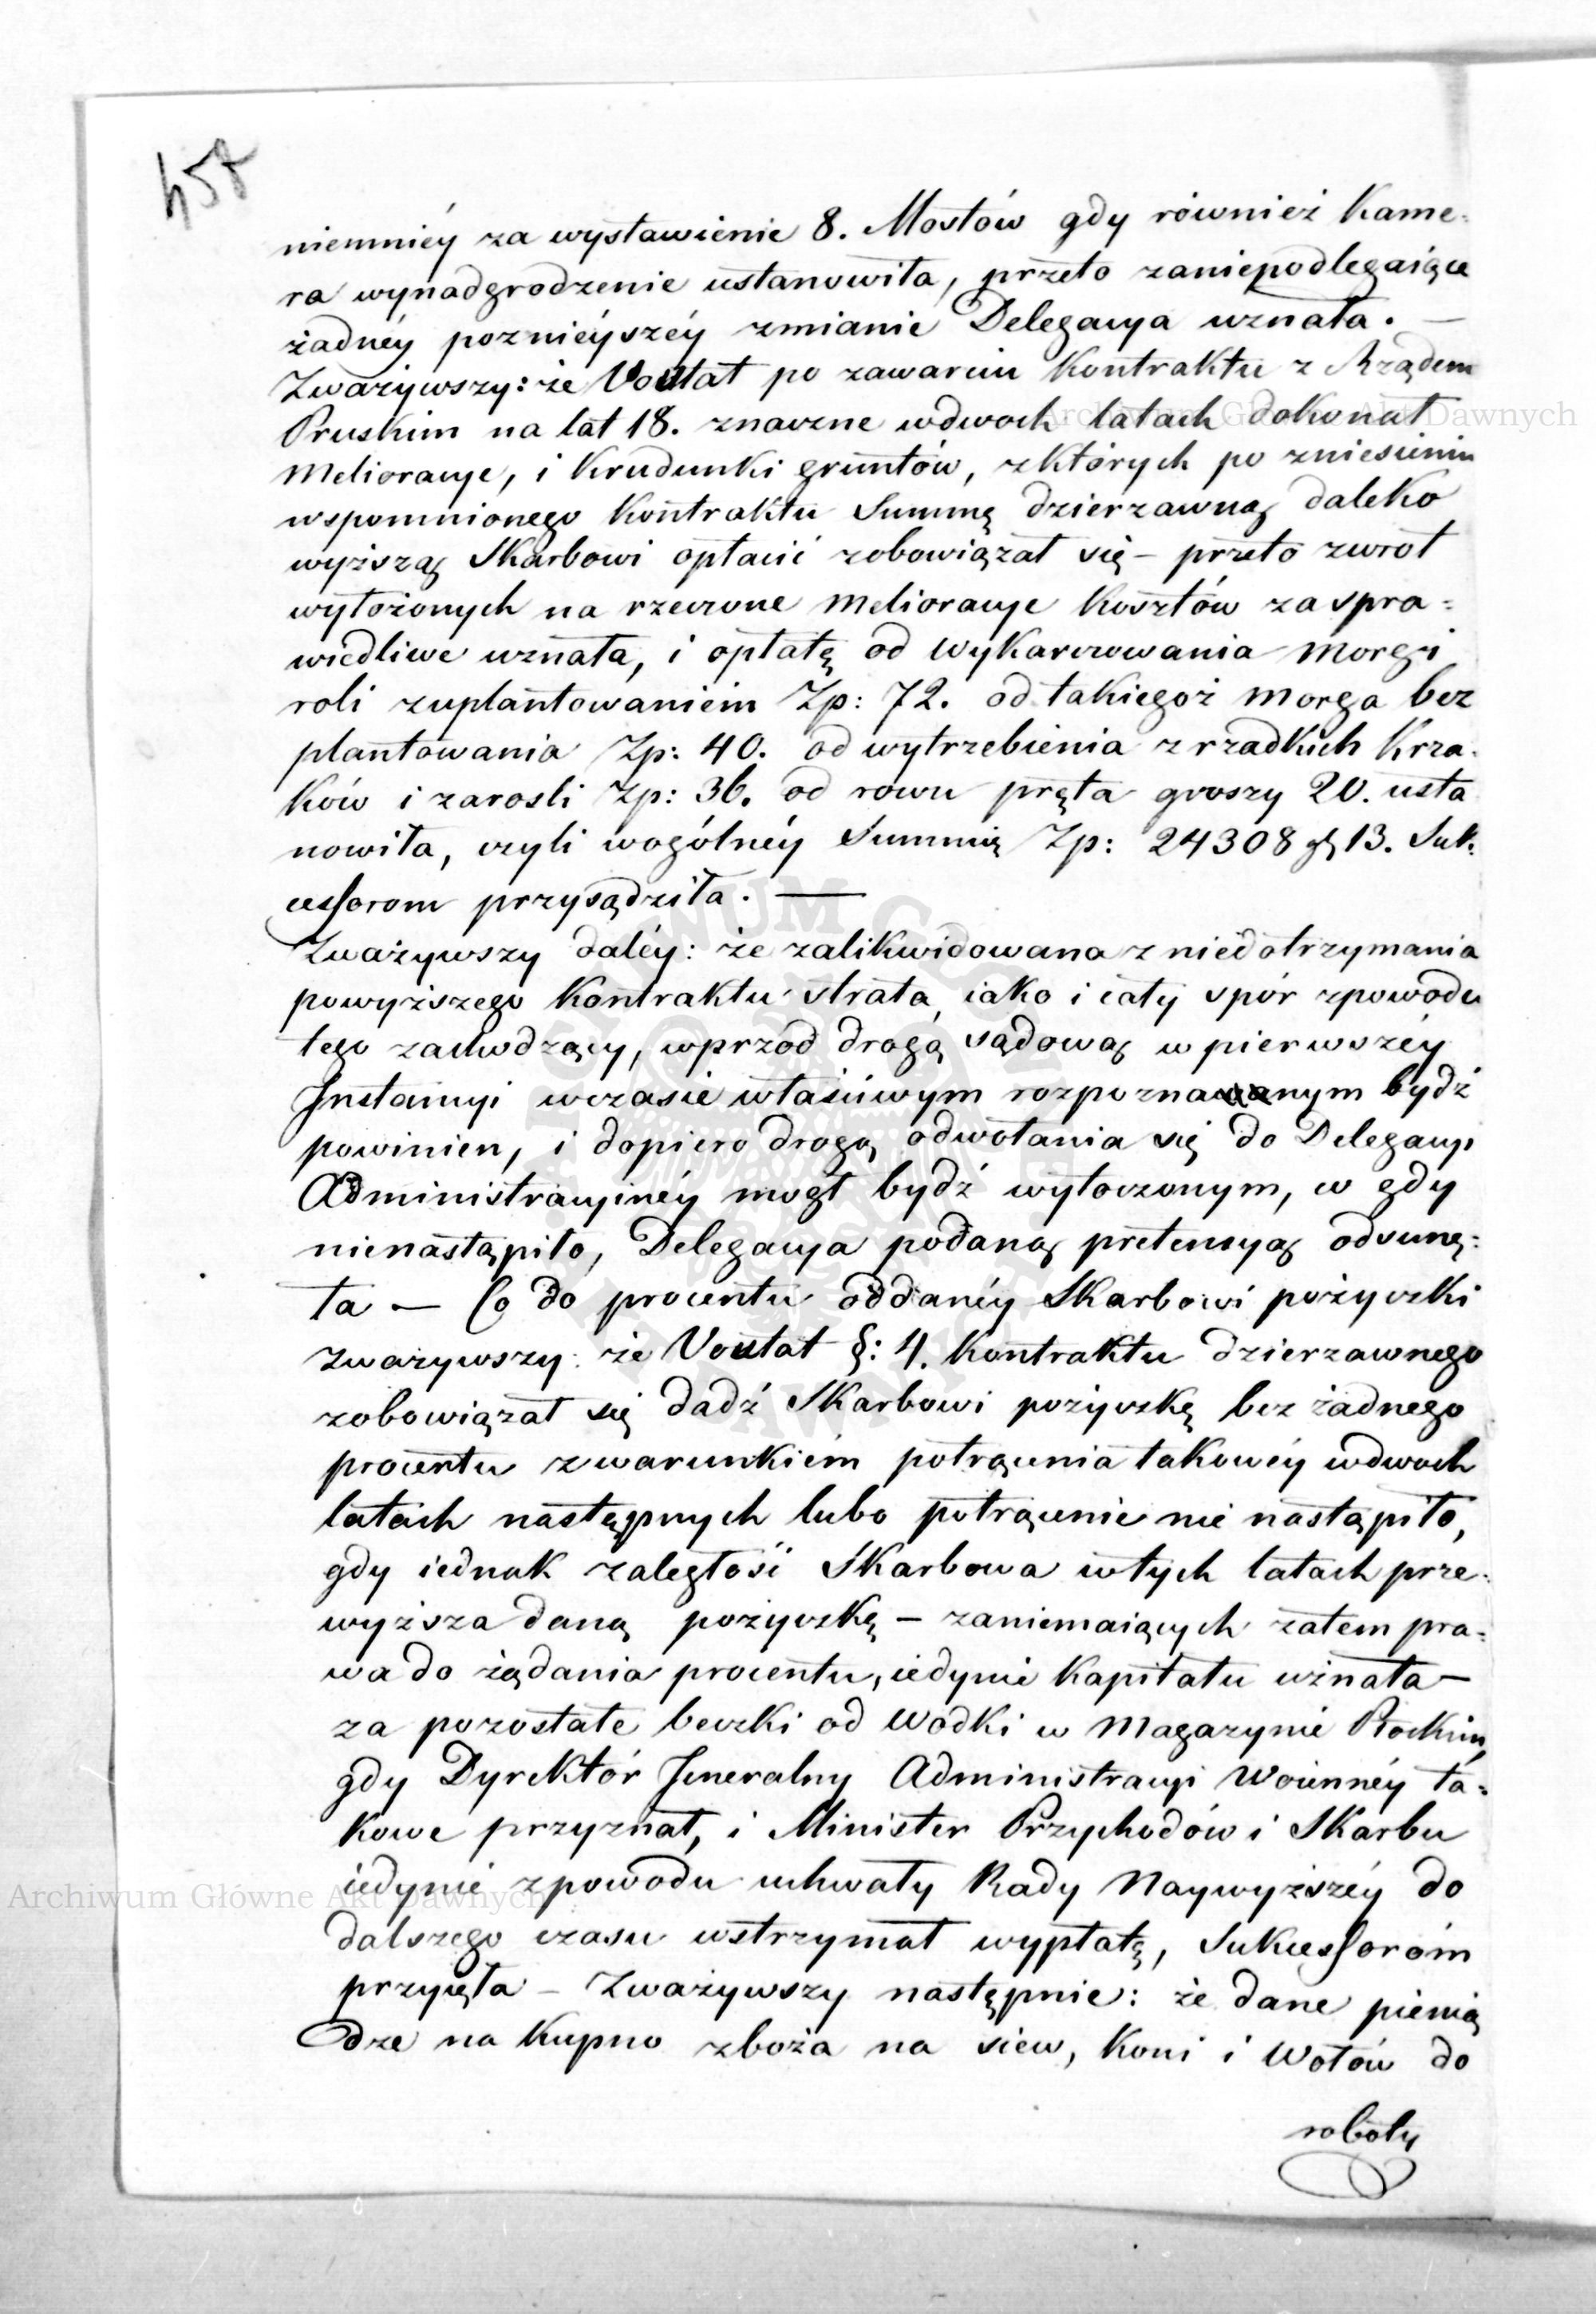 457
niemniéy za wystawienie 8. Mostów gdy również Kame-
ra wynadgrodzenie ustanowiła, przeto zaniepodlegaiące
żadnéy poznieyszéy zmianie Delegacya uznała. —
Zważywszy: że Voutat po zawarciu Kontraktu z Rządem
Pruskim na lat 18. znaczne wdwoch latach dokonał
Melioracye, i Krudunki gruntów, zktórych po zniesieniu
wspomnionego Kontraktu Summę dzierzawną daleko
wyższą Skarbowi opłacić zobowiązał się – przeto zwrot
wyłożonych na rzeczone Melioracye Kosztów za spra-
wiedliwe uznała, i opłatę od Wykarczowania Morgi
roli zuplantowaniem Zp: 72. od takiegoż Morga bez
plantowania Zp: 40. od wytrzebienia z rzadkich Krza-
Ków i zarosli Zp: 36. od rowu pręta groszy 20. usta
nowiła, czyli wogólnéy Summie Zp: 24308 gr 13. Suk-
cessorom przysądziła. —
Zważywszy daléy: że zalikwidowana z niedotrzymania
powyższego Kontraktu strata, iako i cały spór zpowodu
tego zachodzący, wprzód drogą sądową w pierwszéy
Instancyi wczasie właściwym rozpoznanym bydź
powinien, i dopiero drogą odwołania się do Delegacyi
Administracyinéy mógł bydź wytoczonym, w gdy
nienastąpiło, Delegacya podaną pretensyą odsunę-
ła — Co do procentu oddanéy Skarbowi pożyczki
zwazywszy: że Voutat §: 4. Kontraktu dzierzawnego
zobowiązał się dadź Skarbowi pożyczkę bez żadnego
procentu zwarunkiem potrącenia takowéy wdwoch
latach następnych lubo potrącenie nie nastąpiło,
gdy iednak zaległość Skarbowa wtych latach prze-
wyższa daną pożyczkę – zaniemaiących zatem pra-
wa do żądania procentu, iedynie Kapitału uznała –
za pozostałe beczki od Wodki w Magazynie Płockim,
gdy Dyrektór Jeneralny Administracyi Woienney ta-
kowe przyznał, i Minister Przychodów i Skarbu
iedynie zpowodu uchwały Rady Naywyższéy do
dalszego czasu wstrzymał wypłatę, Sukcessorom
przyięła – Zważywszy następnie: że dane pienią
dze na Kupno zboża na siew, Koni i Wołów do
roboty
Archiwum Główne Akt Dawnych
Archiwum Główne Akt Dawnych